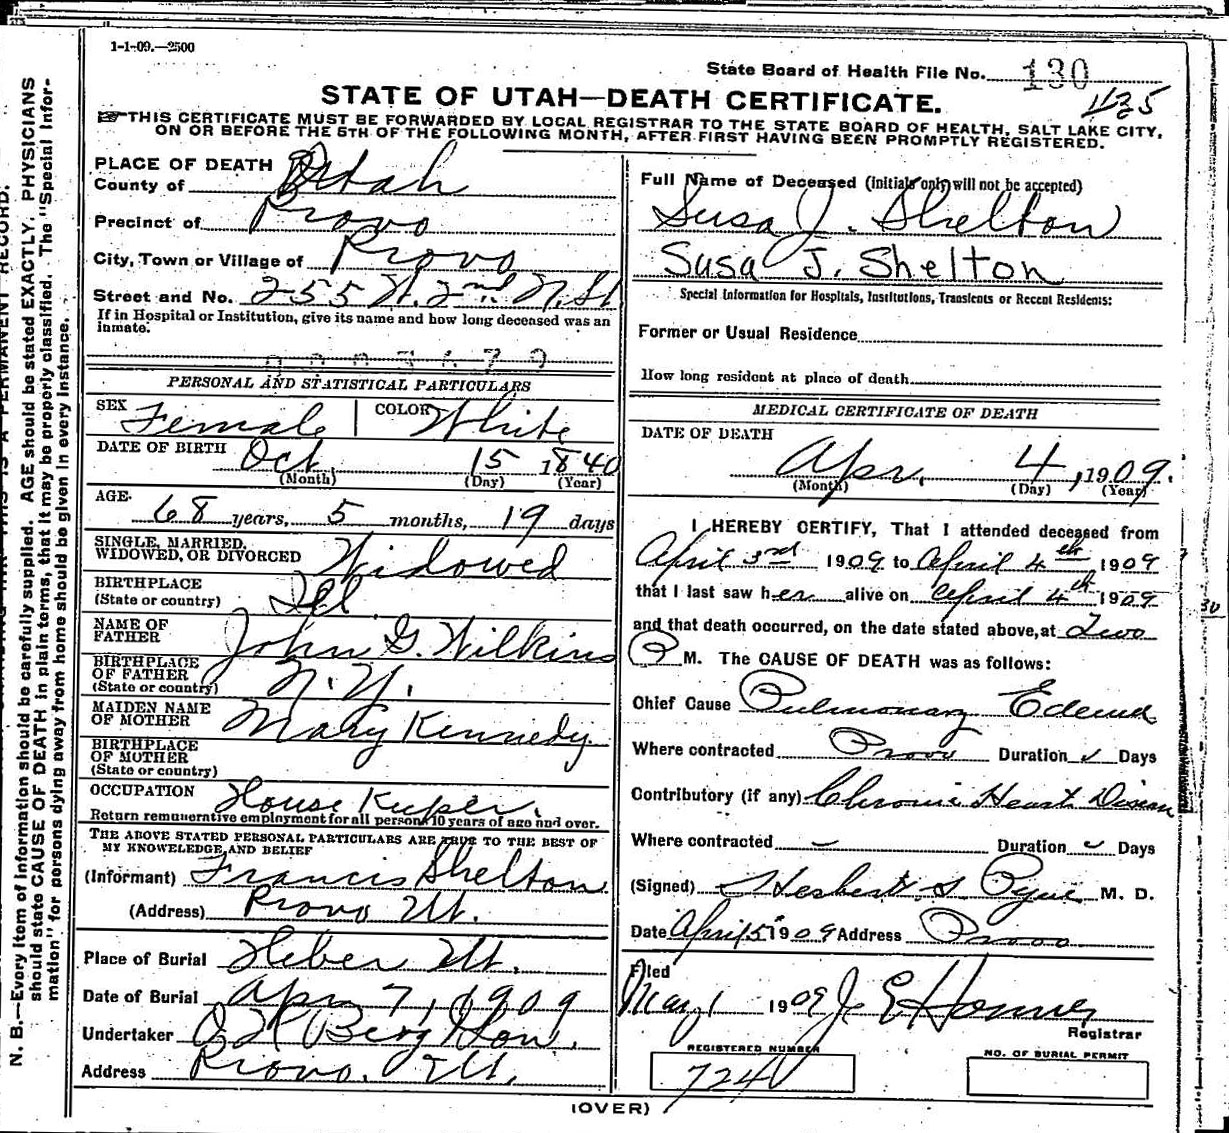 1-1-09.—2500
State Board of Health File No. 130
435
STATE OF UTAH—DEATH CERTIFICATE.
THIS CERTIFICATE MUST BE FORWARDED BY LOCAL REGISTRAR TO THE STATE BOARD OF HEALTH, SALT LAKE CITY,
ON OR BEFORE THE 5TH OF THE FOLLOWING MONTH, AFTER FIRST HAVING BEEN PROMPTLY REGISTERED.
PLACE OF DEATH
County of Utah
Precinct of Provo
City, Town or Village of Provo
Street and No. 255 W. 2nd N. St
If in Hospital or Institution, give its name and how long deceased was an
inmate.
PERSONAL AND STATISTICAL PARTICULARS
SEX Female COLOR White
DATE OF BIRTH Oct 15 1840
(Month) (Day) (Year)
AGE
68 years, 5 months, 19 days
SINGLE, MARRIED,
WIDOWED, OR DIVORCED Widowed
BIRTHPLACE
(State or country) Ill
NAME OF
FATHER John G. Wilkins
BIRTHPLACE
OF FATHER
(State or country) N.Y.
MAIDEN NAME
OF MOTHER Mary Kennedy
BIRTHPLACE
OF MOTHER
(State or country)
OCCUPATION House Keeper.
Return remunerative employment for all persons 10 years of age and over.
THE ABOVE STATED PERSONAL PARTICULARS ARE TRUE TO THE BEST OF
MY KNOWELEDGE AND BELIEF
(Informant) Francis Shelton
(Address) Provo Ut.
Place of Burial Heber Ut.
Date of Burial Apr 7, 1909
Undertaker Berg
Address Provo. Ut.
Full Name of Deceased (initials only will not be accepted)
Susa J. Shelton
Susa J. Shelton
Special Information for Hospitals, Institutions, Transients or Recent Residents:
Former or Usual Residence
How long resident at place of death
MEDICAL CERTIFICATE OF DEATH
DATE OF DEATH
Apr. 4, 1909.
(Month) (Day) (Year)
I HEREBY CERTIFY, That I attended deceased from
April 3rd 1909 to April 4th 1909
that I last saw her alive on April 4th 1909
and that death occurred, on the date stated above, at Two
P M. The CAUSE OF DEATH was as follows:
Chief Cause Pulmonary Edema
Where contracted Provo Duration Days
Contributory (if any) Chronic Heart Disease
Where contracted Duration Days
(Signed) Herbert S. Pyne M. D.
Date April 5 1909 Address Provo
Filed
May 1 1909 J. E.
Registrar
REGISTERED NUMBER
724
NO. OF BURIAL PERMIT
(OVER)
N. B.—Every item of information should be carefully supplied. AGE should be stated EXACTLY. PHYSICIANS
should state CAUSE OF DEATH in plain terms, that it may be properly classified. The "Special Infor-
mation" for persons dying away from home should be given in every instance.
30